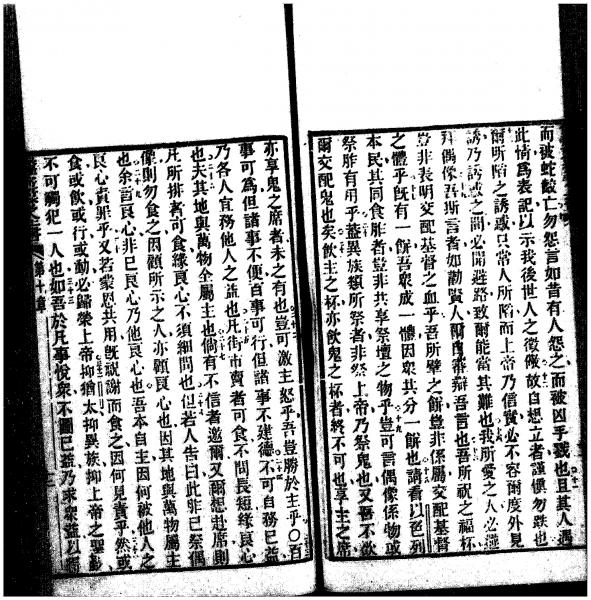 而被蛇齩亡勿怨言如昔有人怨之而被凶手戮也且其人遇
此情爲表記以示我後世人之徵儆故自想立者謹愼勿跌也
爾所陷之誘惑只常人所陷而上帝乃信實必不容爾度外見
誘乃誘惑之間必開避路致爾能當其難也我所愛之人必避
拜偶像吾斯言者如勸賢人爾自審辯吾言也吾所祝之福杯
豈非表明交配基督之血乎吾所擘之餅豈非係屬交配基督
之體乎旣有一餅吾衆成一體因衆共分一餅也請看以色列
本民其同食胙者豈非共享祭壇之物乎豈可言偶像係物或
祭胙有用乎蓋異族類所祭者非祭上帝乃祭鬼也又吾不欲
爾交配鬼也矣飲主之杯亦飲鬼之杯者終不可也享主之席
亦享鬼之席者未之有也豈可激主怒乎吾豈勝於主乎○百
事可爲但諸事不便百事可行但諸事不建德不可自務己益
乃各人宜務他人之益也凡街市賣者可食不問長短緣良心
也夫其地與萬物全屬主也倘有不信者邀爾又爾想赴席則
凡所排者可食緣良心不須細問也但若人告曰此非已祭偶
像則勿食之因顧所示之人亦顧良心也因其地與萬物屬主
也余言良心非己良心乃他良心也吾本自主因何被他人之
良心責罪乎又若蒙恩共用旣祝謝而食之因何見責乎然或
食或飲或行或動必歸榮上帝抑猶太抑異族抑上帝之聖會
不可觸犯一人也如吾於凡事悅衆不圖己益乃求衆益以得
第十章